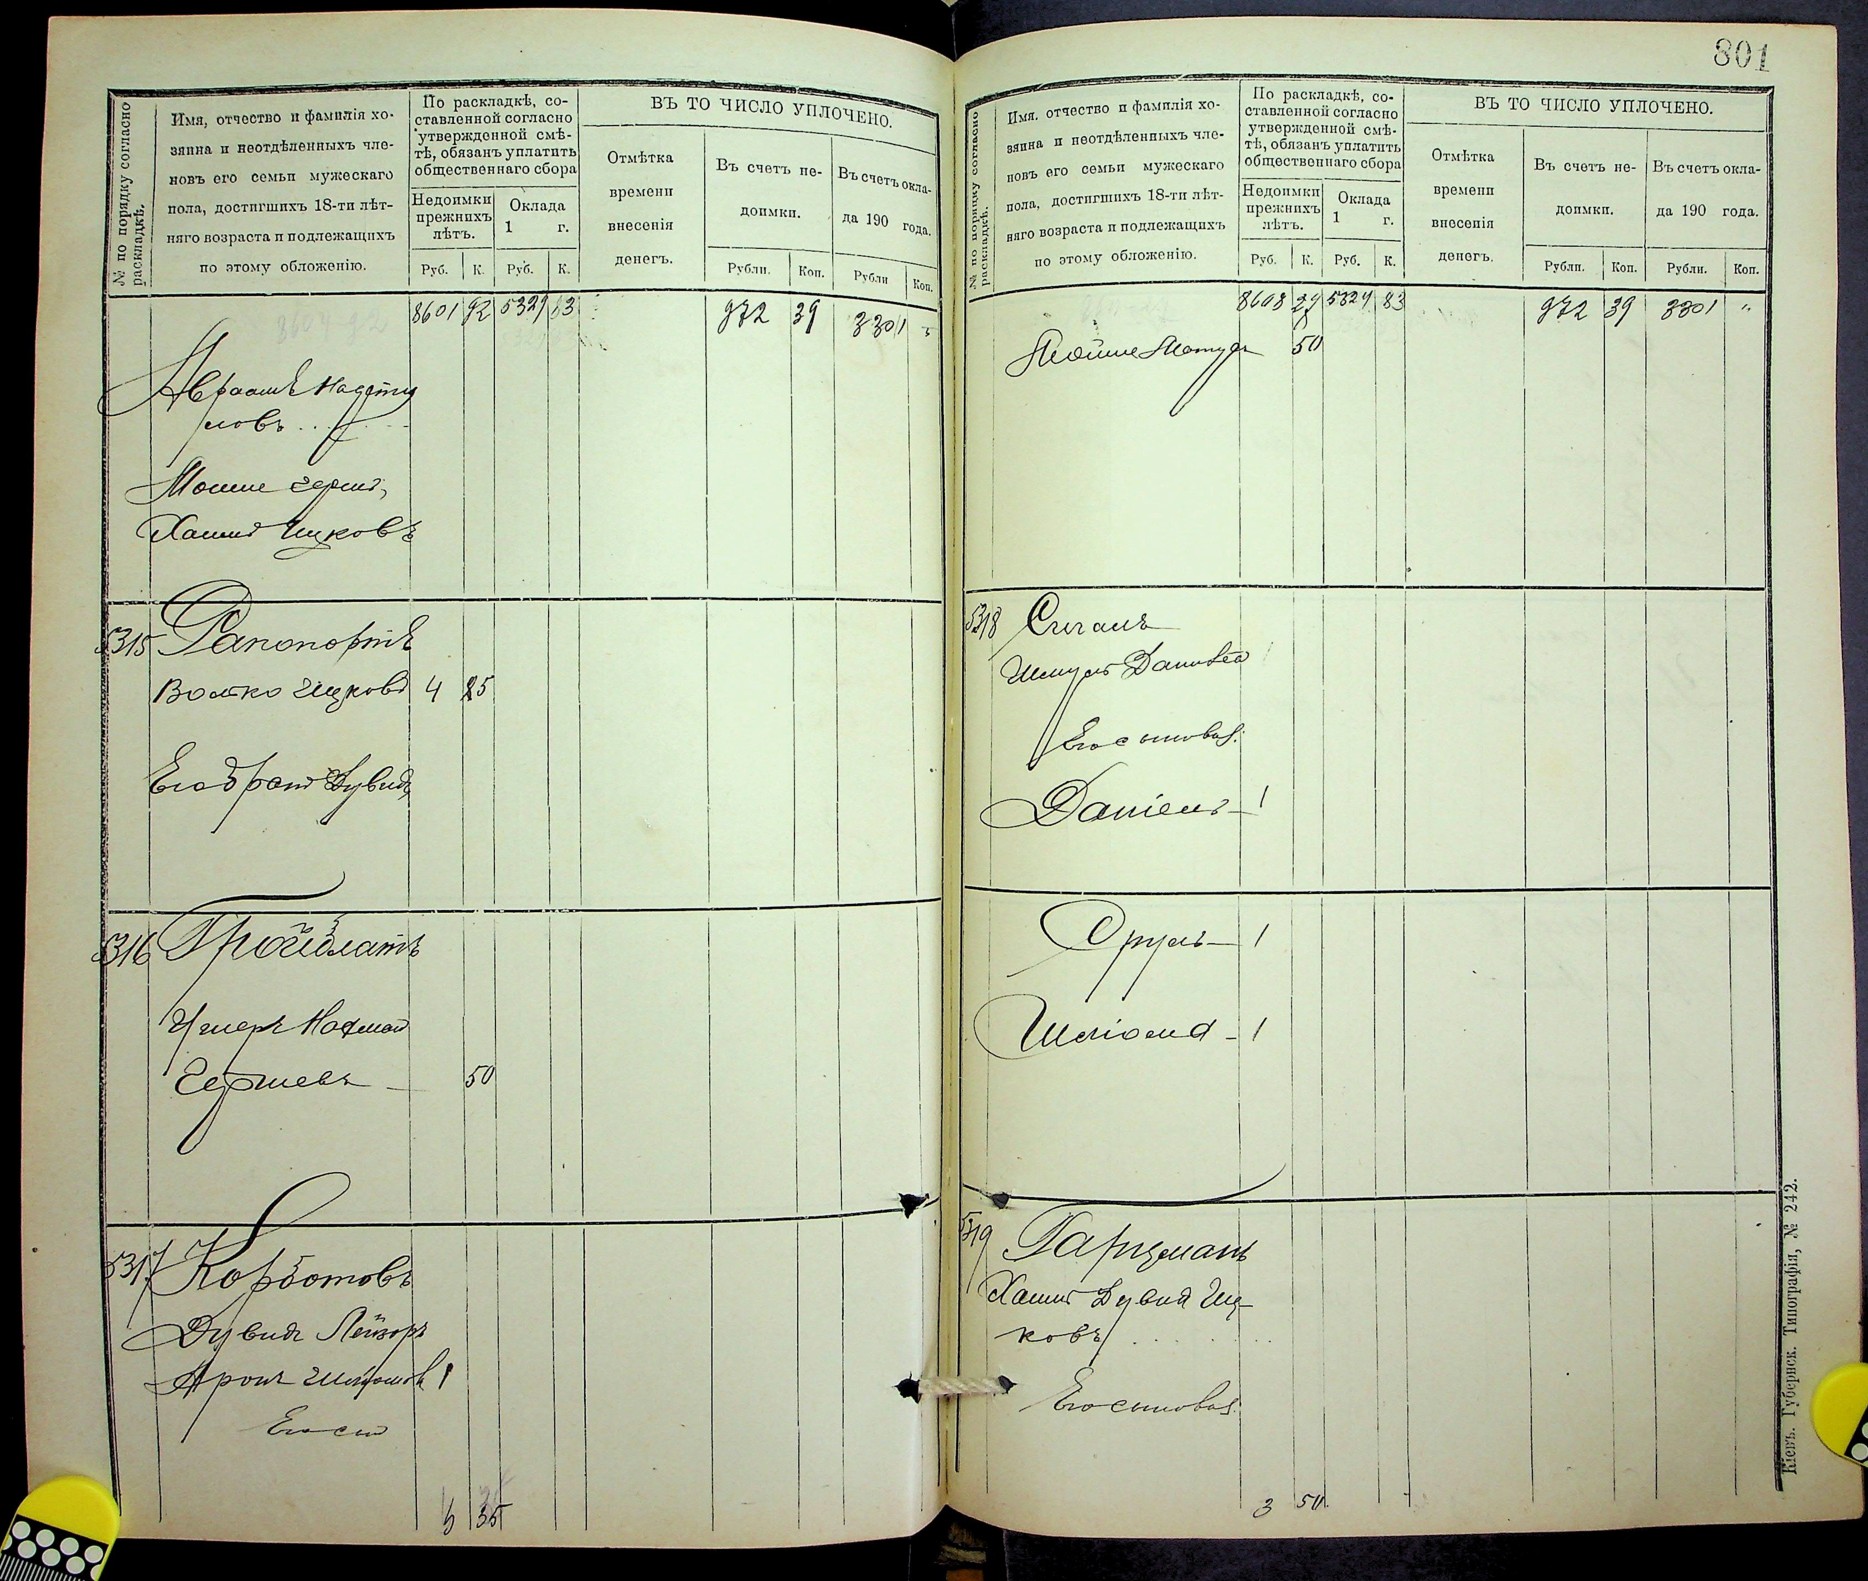 № по порядку согласно раскладкѣ.
Имя, отчество и фамилія хо-
зяина и неотдѣленныхъ чле-
новъ его семьи мужескаго
пола, достигшихъ 18-ти лѣт-
няго возраста и подлежащихъ
по этому обложенію.
По раскладкѣ, со-
ставленной согласно
утвержденной смѣ-
тѣ, обязанъ уплатить
общественнаго сбора
Недоимки
прежнихъ
лѣтъ.
Оклада
1 г.
Руб. К. Руб. К.
ВЪ ТО ЧИСЛО УПЛОЧЕНО.
Отмѣтка
времени
внесенія
денегъ.
Въ счетъ не-
доимки.
Рубли. Коп.
Въ счетъ окла-
да 190 года.
Рубли Коп.
8601 92 5329 83 972 39 3301 "
Авраамъ
Мошко
Хаимъ Ицковъ
5315 Рапопортъ
Волько Ицковъ 4 85
Его братъ Дувидъ
5316
Нахман
Гершевъ 50
5317 Корботовъ
Дувидъ Лейзоръ
Аронъ 1
Его сын
5 35
801
№ по порядку согласно раскладкѣ.
Имя, отчество и фамилія хо-
зяина и неотдѣленныхъ чле-
новъ его семьи мужескаго
пола, достигшихъ 18-ти лѣт-
няго возраста и подлежащихъ
по этому обложенію.
По раскладкѣ, со-
ставленной согласно
утвержденной смѣ-
тѣ, обязанъ уплатить
общественнаго сбора
Недоимки
прежнихъ
лѣтъ.
Оклада
1 г.
Руб. К. Руб. К.
ВЪ ТО ЧИСЛО УПЛОЧЕНО.
Отмѣтка
времени
внесенія
денегъ.
Въ счетъ не-
доимки.
Рубли. Коп.
Въ счетъ окла-
да 190 года.
Рубли. Коп.
8608 27 5329 83 972 39 3301 "
50
5318
Шмуль
Его сыновья:
Даніель — 1
Сруль — 1
Шліома — 1
5319
Хаимъ Дувид Иц-
ковъ
Его сыновья:
3 50
Кіевъ. Губернск. Типографія, № 242.